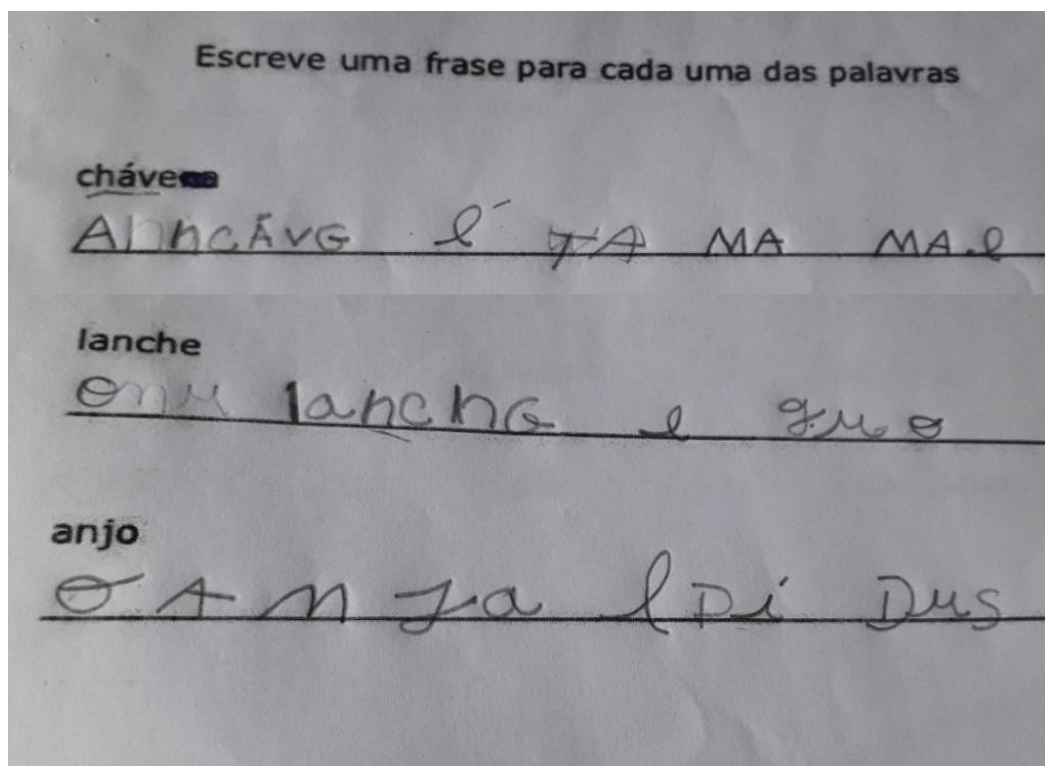 Escreve uma frase para cada uma das palavras
cháve
AhncÁvG é DA MA MAe
lanche
lanchG e
anjo
O AnJa e Di Dus